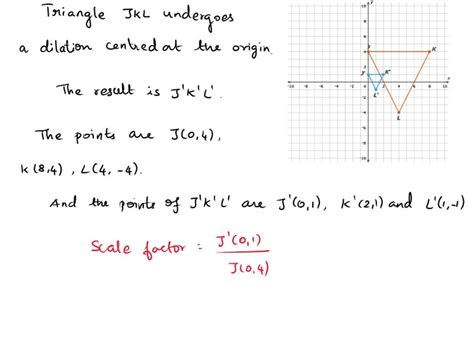 Triangle JKL undergoes
a dilation centred at the origin.
The result is J'K'L'.
The points are J(0,4),
K(8,4), L(4,-4).
And the points of J'K'L' are J'(0,1), K'(2,1) and L'(1,-1)
Scale factor = J'(0,1)
J(0,4)
y
10
8
6
4
2
-2
-4
-6
-8
-10
-10 -8 -6 -4 -2 0 2 4 6 8 10
J
K
J'
K'
L'
L